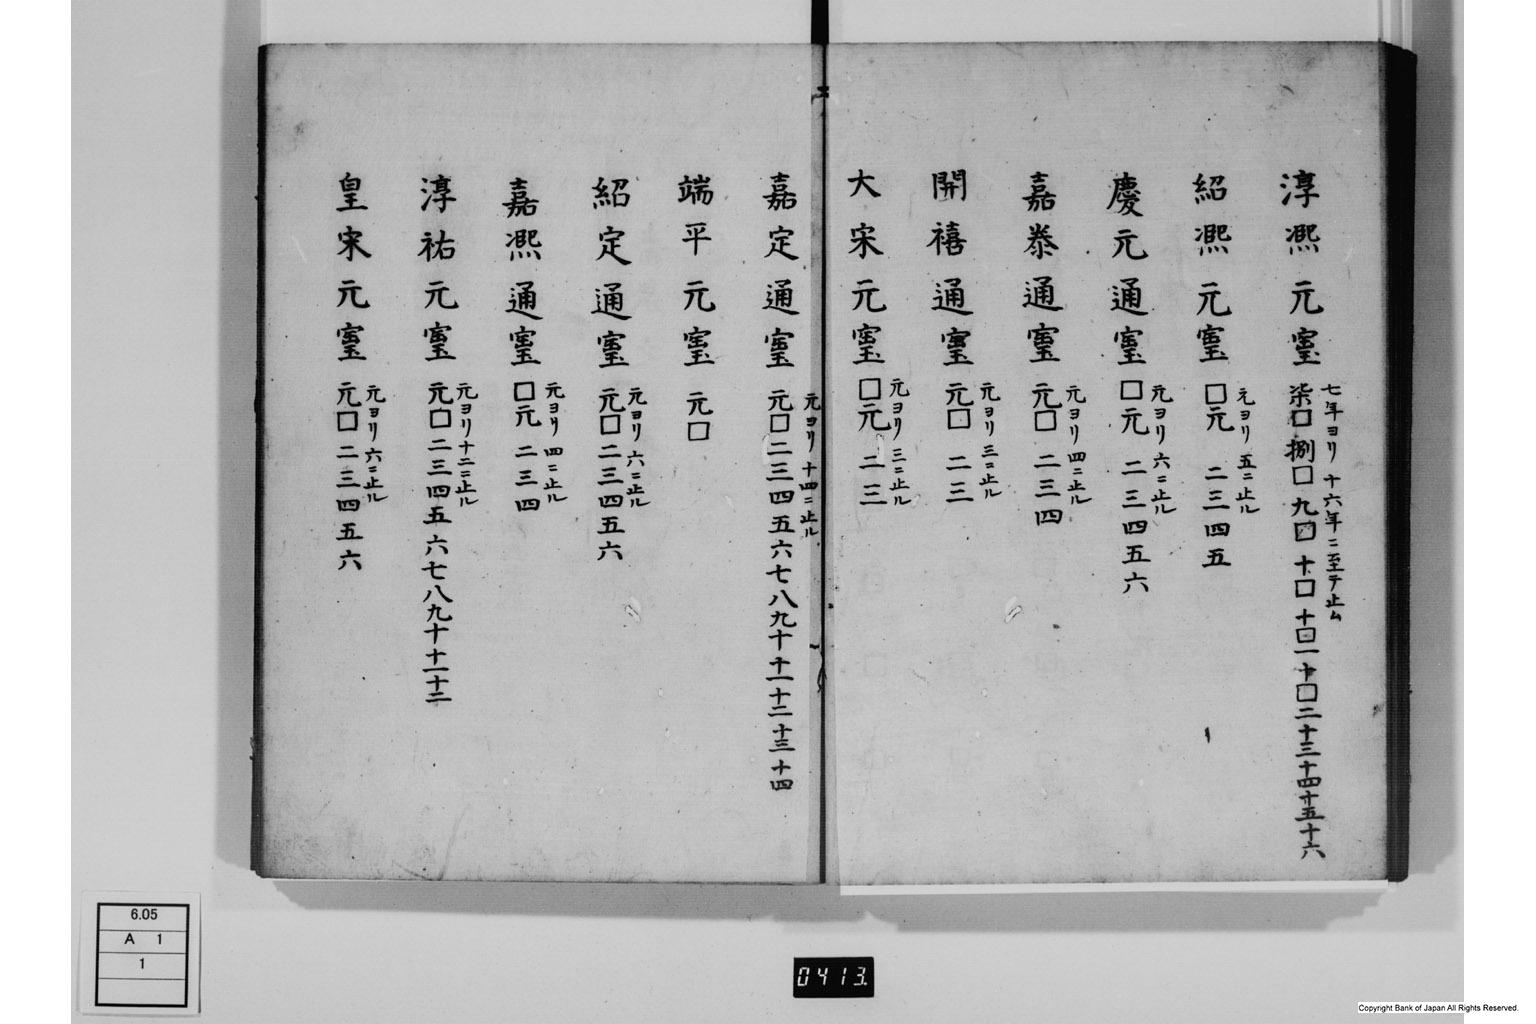 淳熈元寳 柒口捌口九口十口十口一十口二十三十四十五十六
七年ヨリ十六年ニ至テ止ム
紹熈元寳 口元二三四五
元ヨリ五ニ止ル
慶元通寳 口元二三四五六
元ヨリ六ニ止ル
嘉泰通寳 元口二三四
元ヨリ四ニ止ル
開禧通寳 元口二三
元ヨリ三ニ止ル
大宋元寳 口元二三
元ヨリ三ニ止ル
嘉定通寳 元口二三四五六七八九十十一十二十三十四
元ヨリ十四ニ止ル
端平元寳 元口
紹定通寳 元口二三四五六
元ヨリ六ニ止ル
嘉熈通寳 口元二三四
元ヨリ四ニ止ル
淳祐元寳 元口二三四五六七八九十十一十二
元ヨリ十二ニ止ル
皇宋元寳 元口二三四五六
元ヨリ六ニ止ル
6.05
A 1
1
0413.
Copyright Bank of Japan All Rights Reserved.